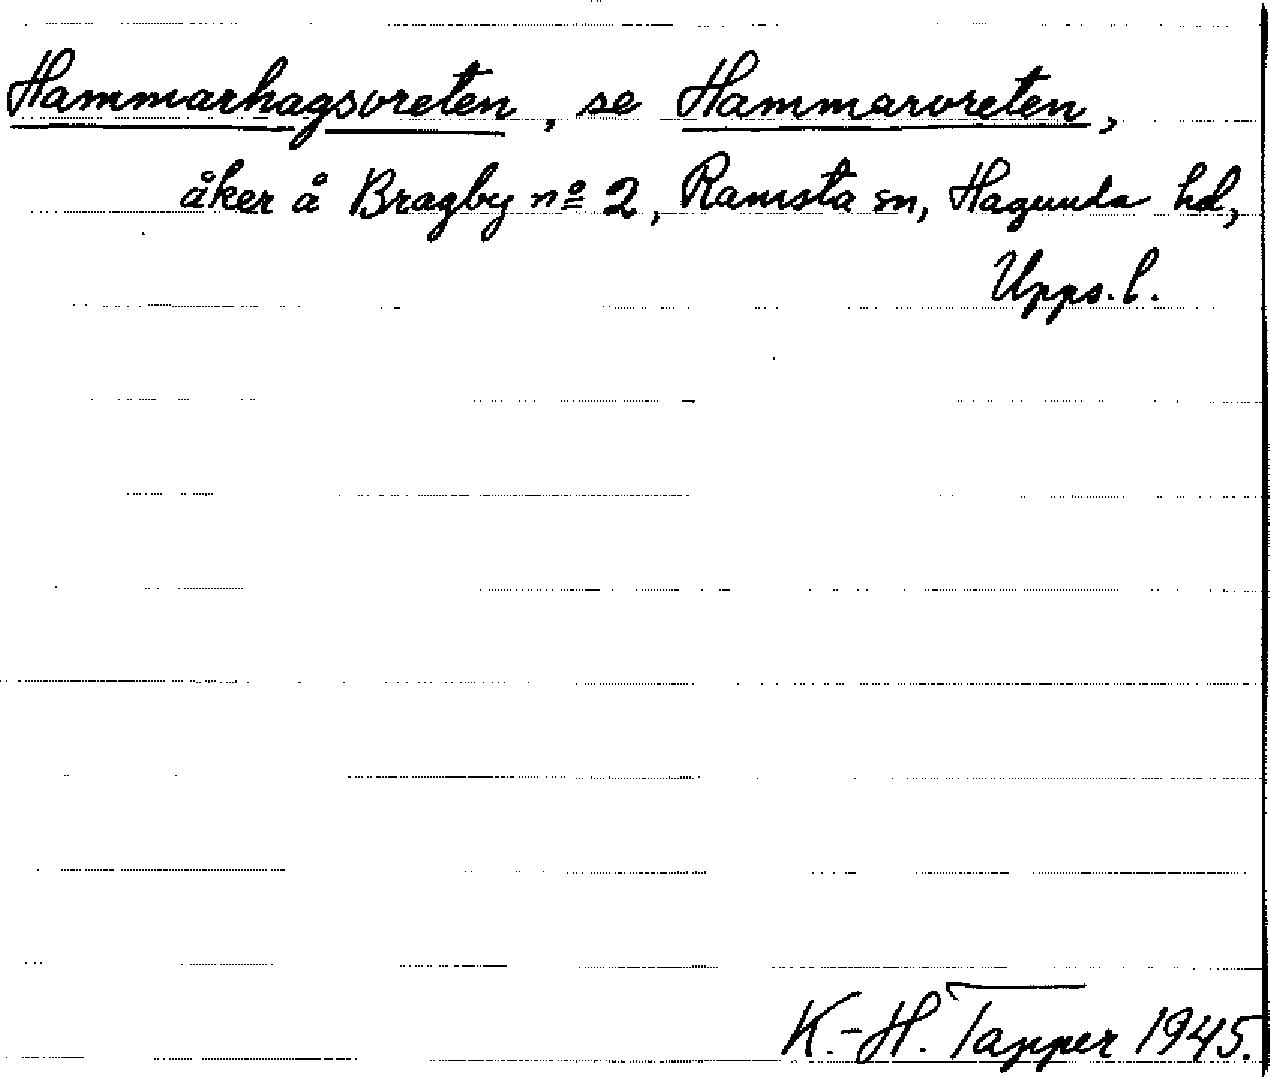 Hammarhagsvreten, se Hammarvreten,
åker å Bragby nº 2, Ramsta sn, Hagunda hd,
Upps. l.
K.-H. Tapper 1945.